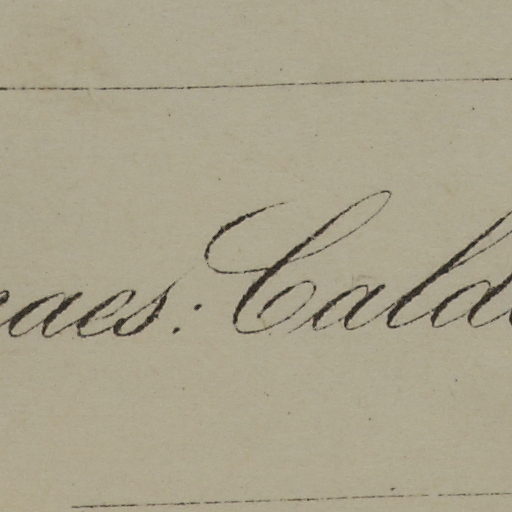 aes: Cald